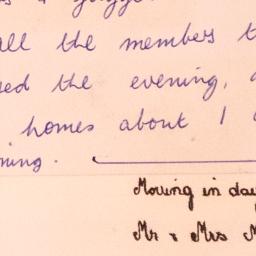 all the members
the evening,
homes about 1
Moving in day
Mr & Mrs